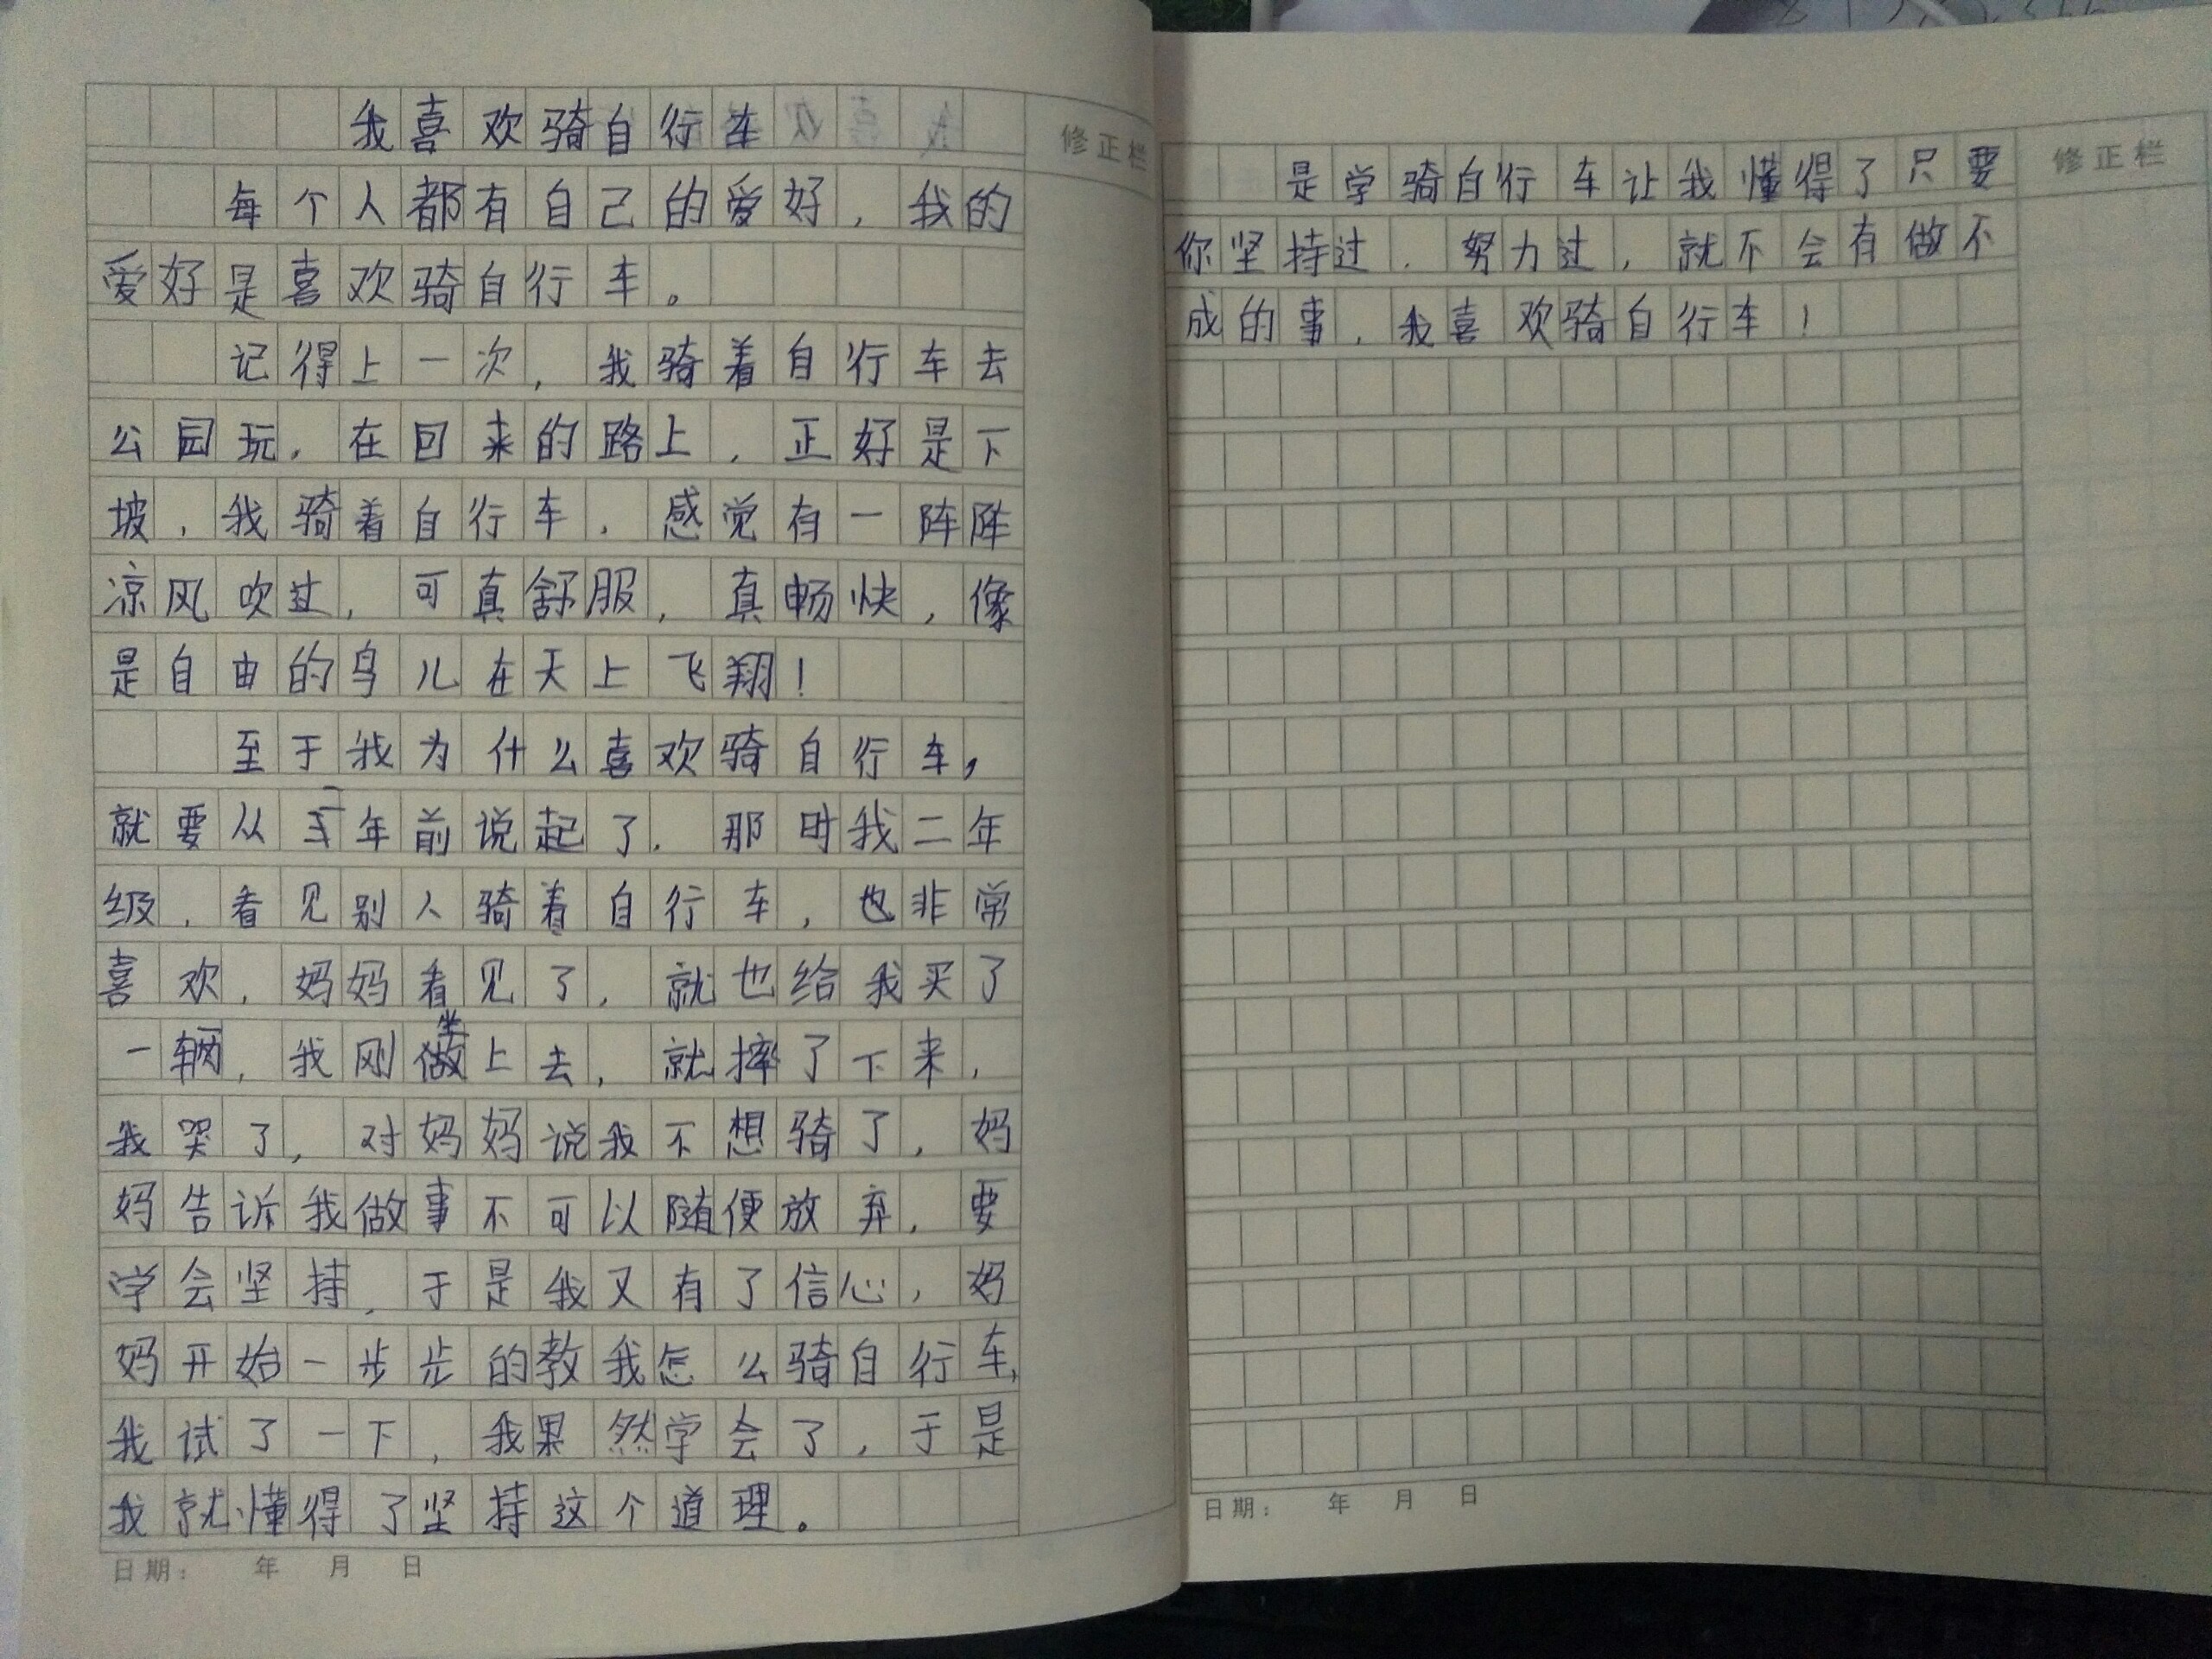 我喜欢骑自行车
修正栏
每个人都有自己的爱好，我的
爱好是喜欢骑自行车。
记得上一次，我骑着自行车去
公园玩，在回来的路上，正好是下
坡，我骑着自行车，感觉有一阵阵
凉风吹过，可真舒服，真畅快，像
是自由的鸟儿在天上飞翔！
至于我为什么喜欢骑自行车，
就要从二年前说起了，那时我二年
级，看见别人骑着自行车，也非常
喜欢，妈妈看见了，就也给我买了
一辆，我刚坐上去，就摔了下来，
我哭了，对妈妈说我不想骑了，妈
妈告诉我做事不可以随便放弃，要
学会坚持，于是我又有了信心，妈
妈开始一步步的教我怎么骑自行车，
我试了一下，我果然学会了，于是
我就懂得了坚持这个道理。
日期： 年 月 日
修正栏
是学骑自行车让我懂得了只要
你坚持过，努力过，就不会有做不
成的事，我喜欢骑自行车！
日期： 年 月 日